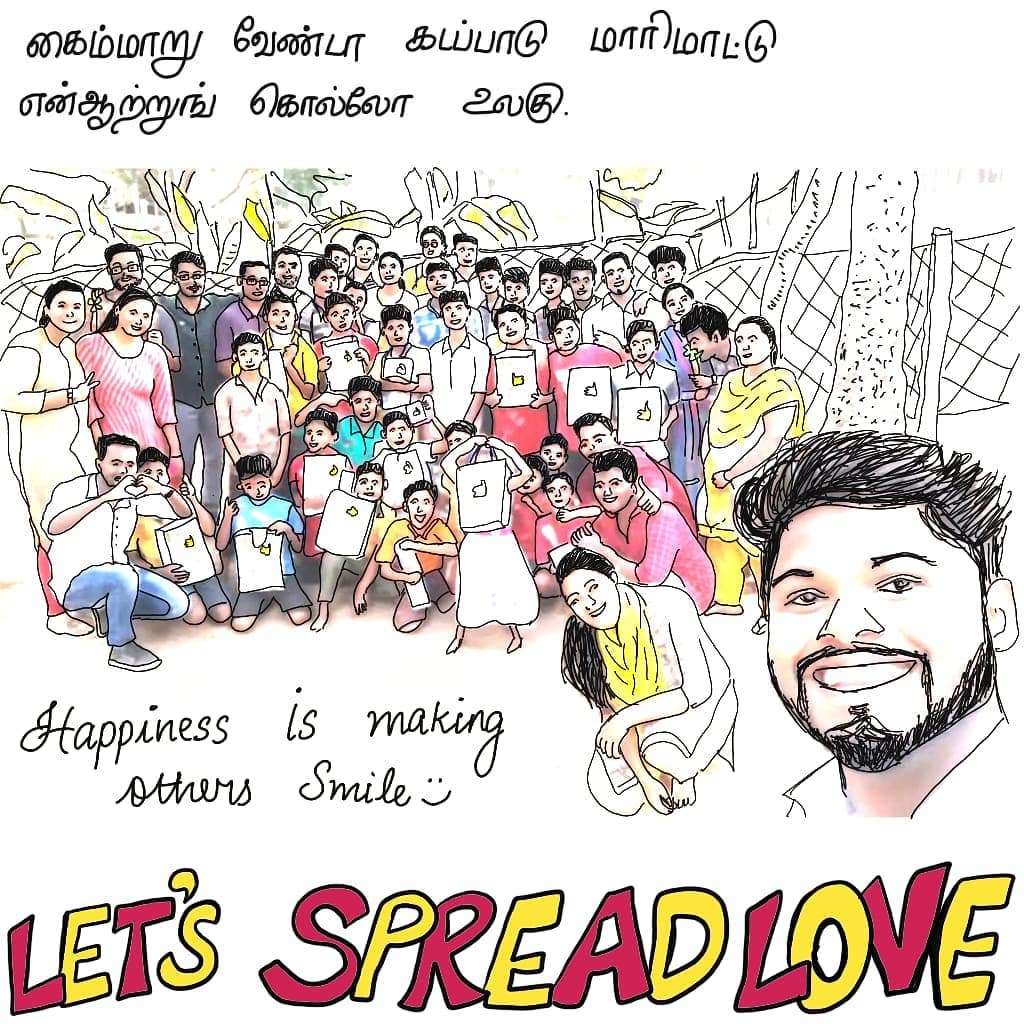 கைம்மாறு வேண்டா கடப்பாடு மாரிமாட்டு
என்ஆற்றுங் கொல்லோ உலகு.
Happiness is making
others Smile :)
LET'S SPREAD LOVE